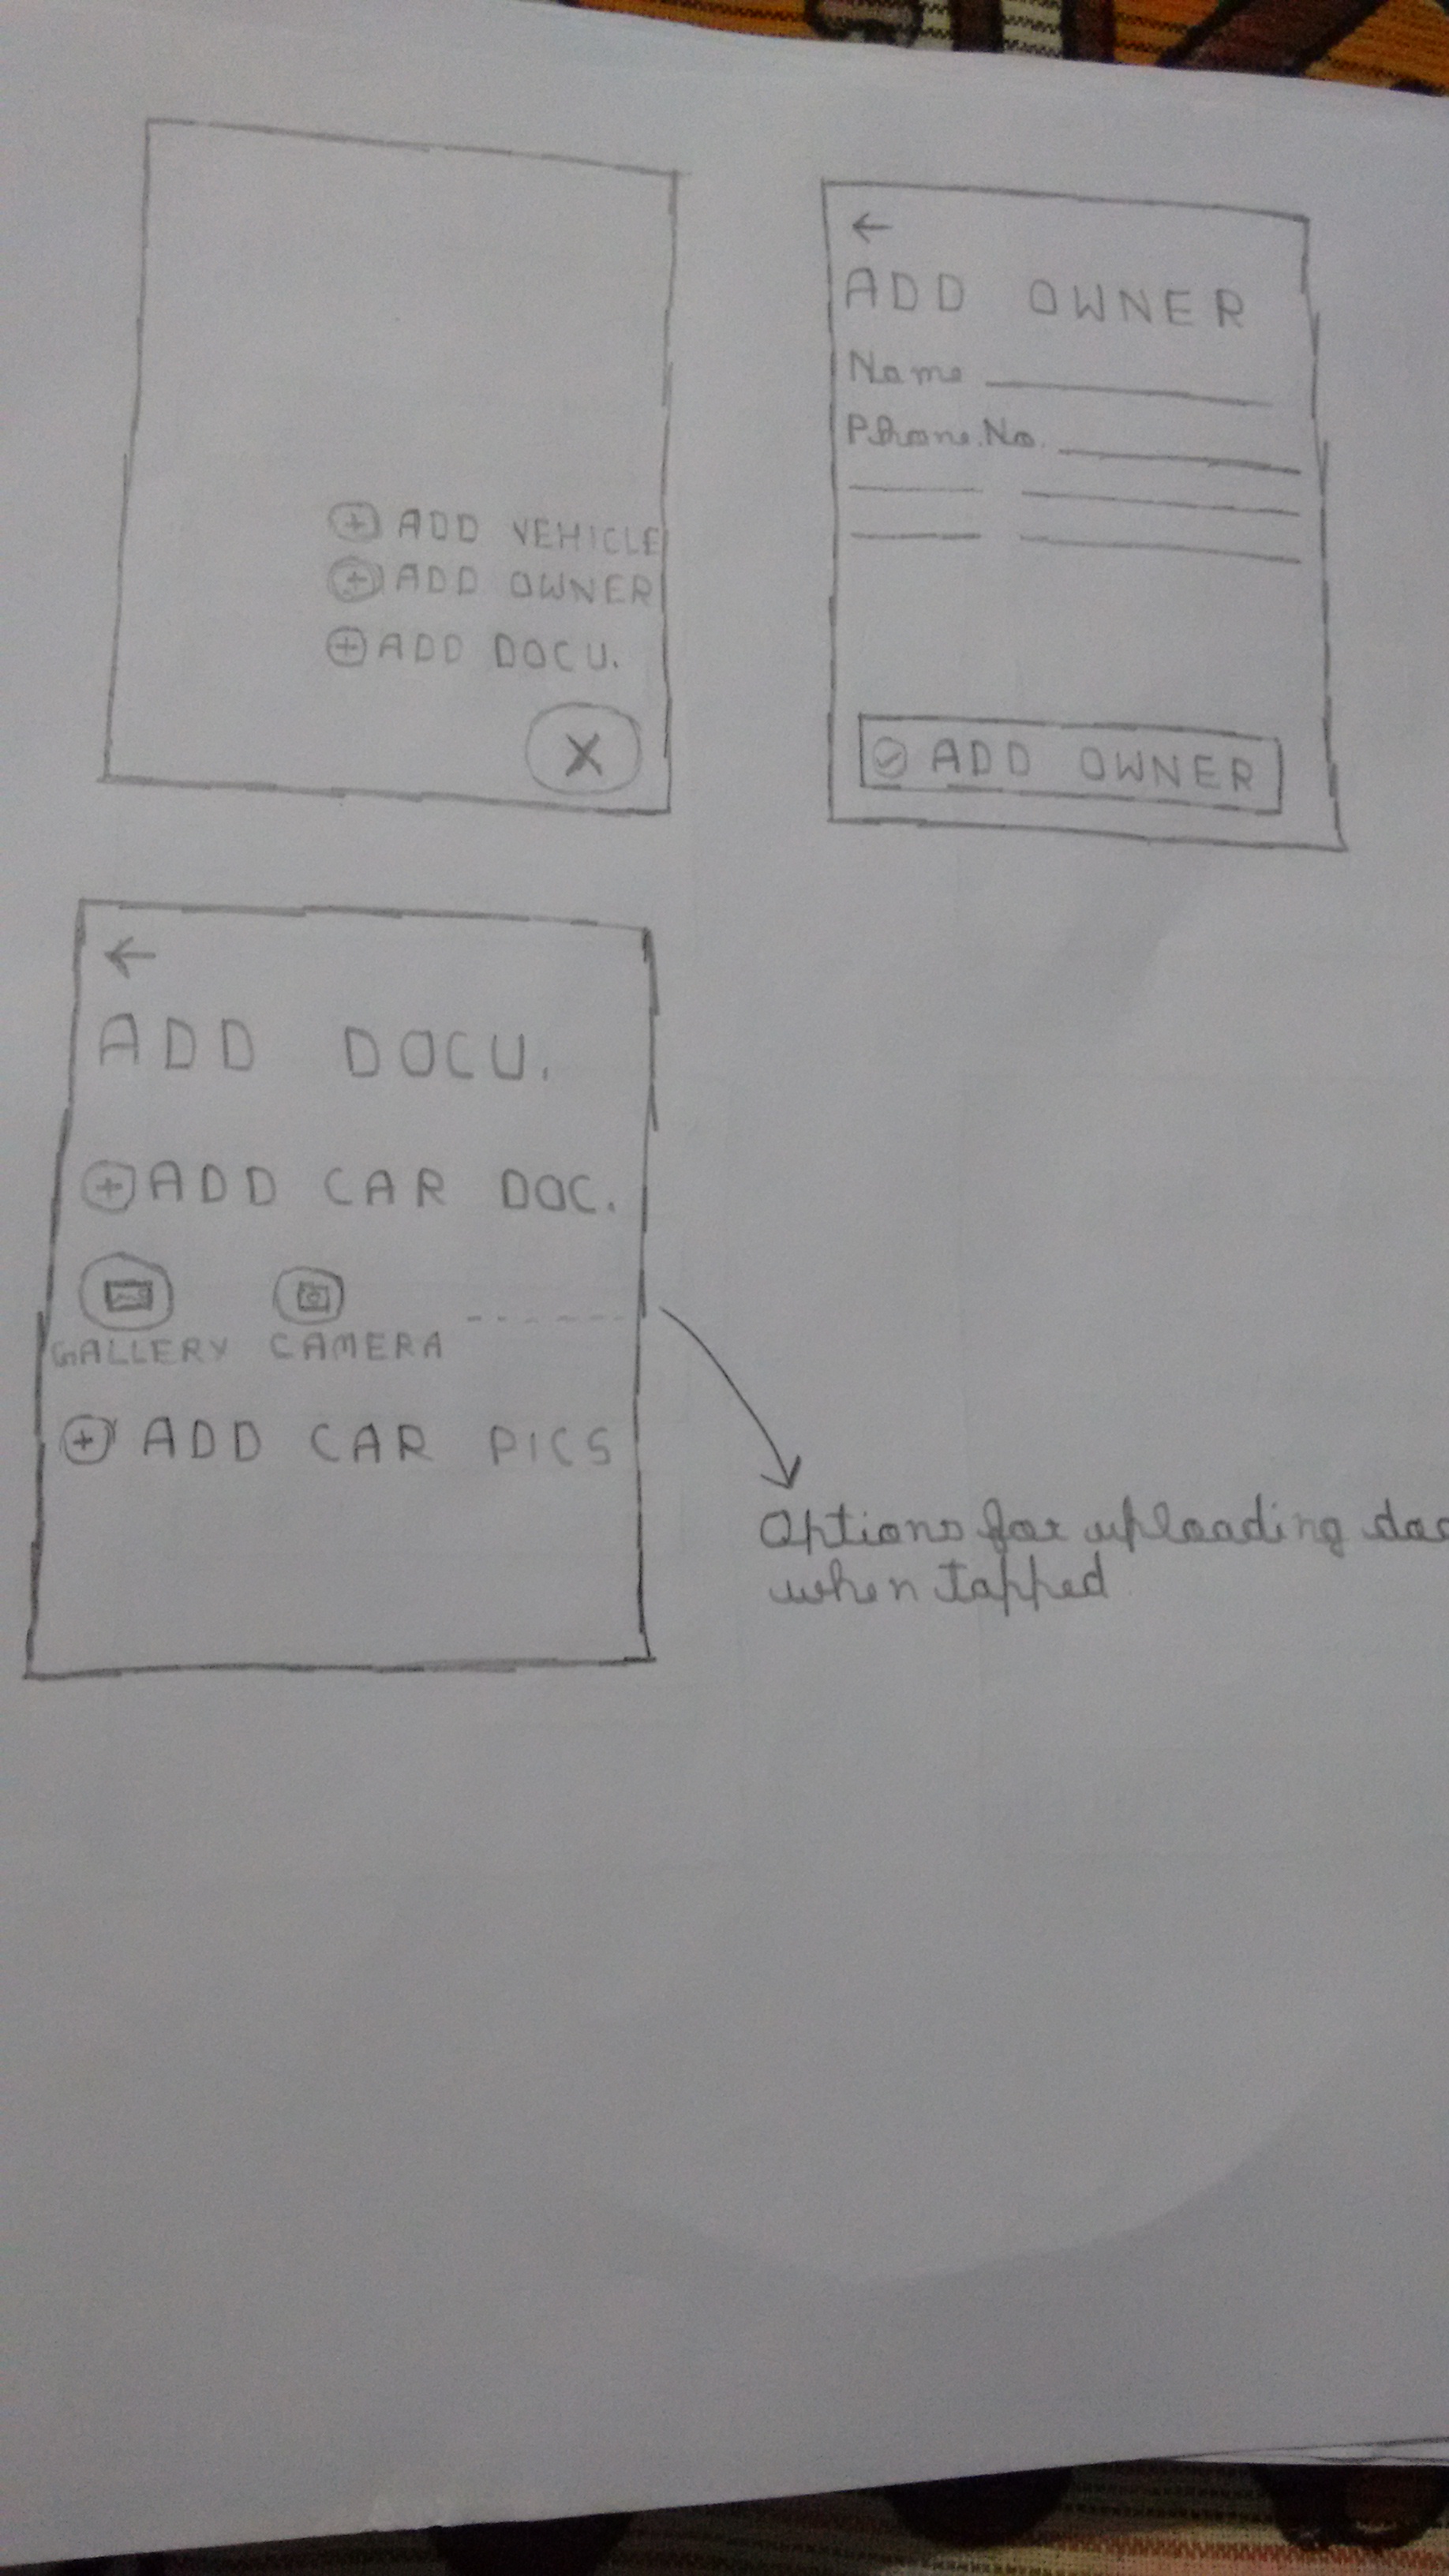 ADD VEHICLE
ADD OWNER
ADD DOCU.
X
ADD OWNER
Name
Phone.No.
ADD OWNER
ADD DOCU.
ADD CAR DOC.
GALLERY CAMERA
ADD CAR PICS
Options for uploading doc
when tapped